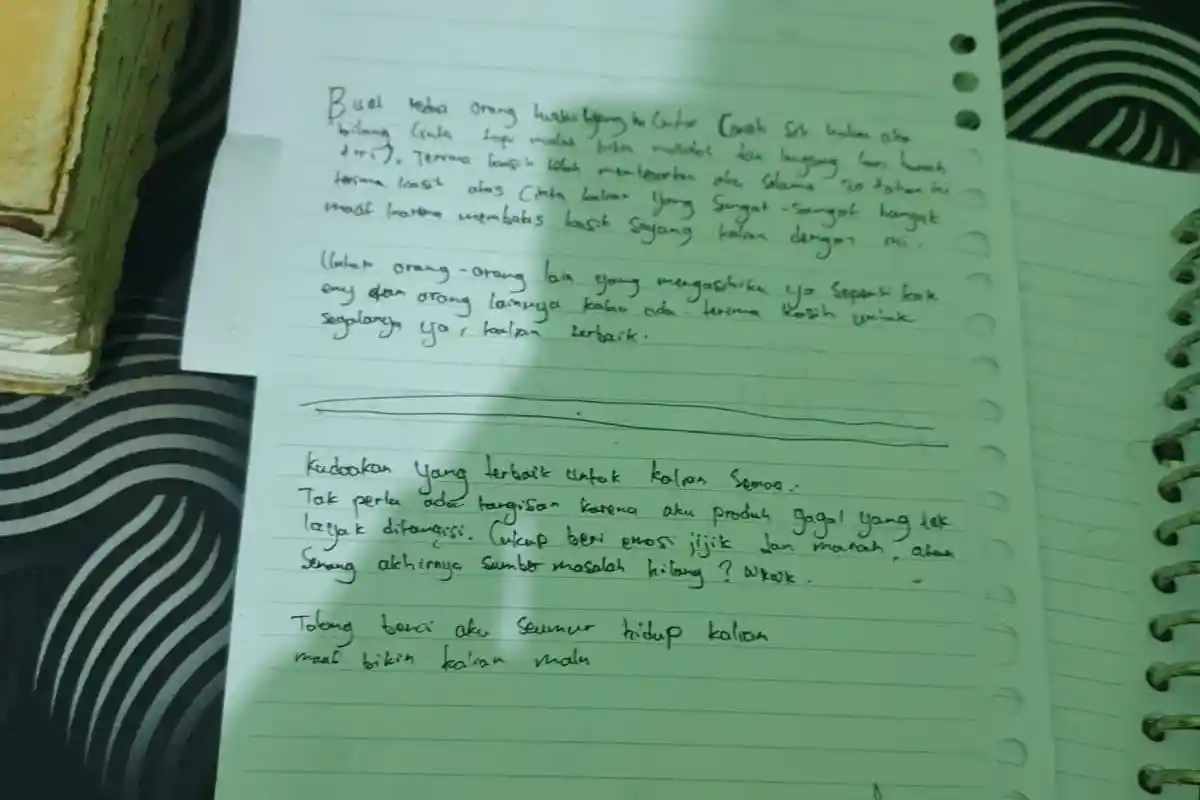 Buat kedua orang
bilang Cinta tapi malah bikin dan langsung
diri). Terima kasih telah membesarkan aku selama 20 tahun ini
terima kasih atas Cinta kalian yang Sangat-Sangat hangat
maaf karena membalas kasih Sayang kalian dengan ini.
Untuk orang-orang lain yang mengasihiku ya seperti kak
dan orang lainnya kalau ada. terima kasih untuk
segalanya ya, kalian terbaik.
Kudoakan yang terbaik untuk kalian Semua.
Tak perlu ada tangisan karena aku produk gagal yang tak
layak ditangisi. Cukup beri emosi jijik dan marah, atau
Senang akhirnya Sumber masalah hilang? Wkwk.
Tolong benci aku Seumur hidup kalian
maaf bikin kalian malu